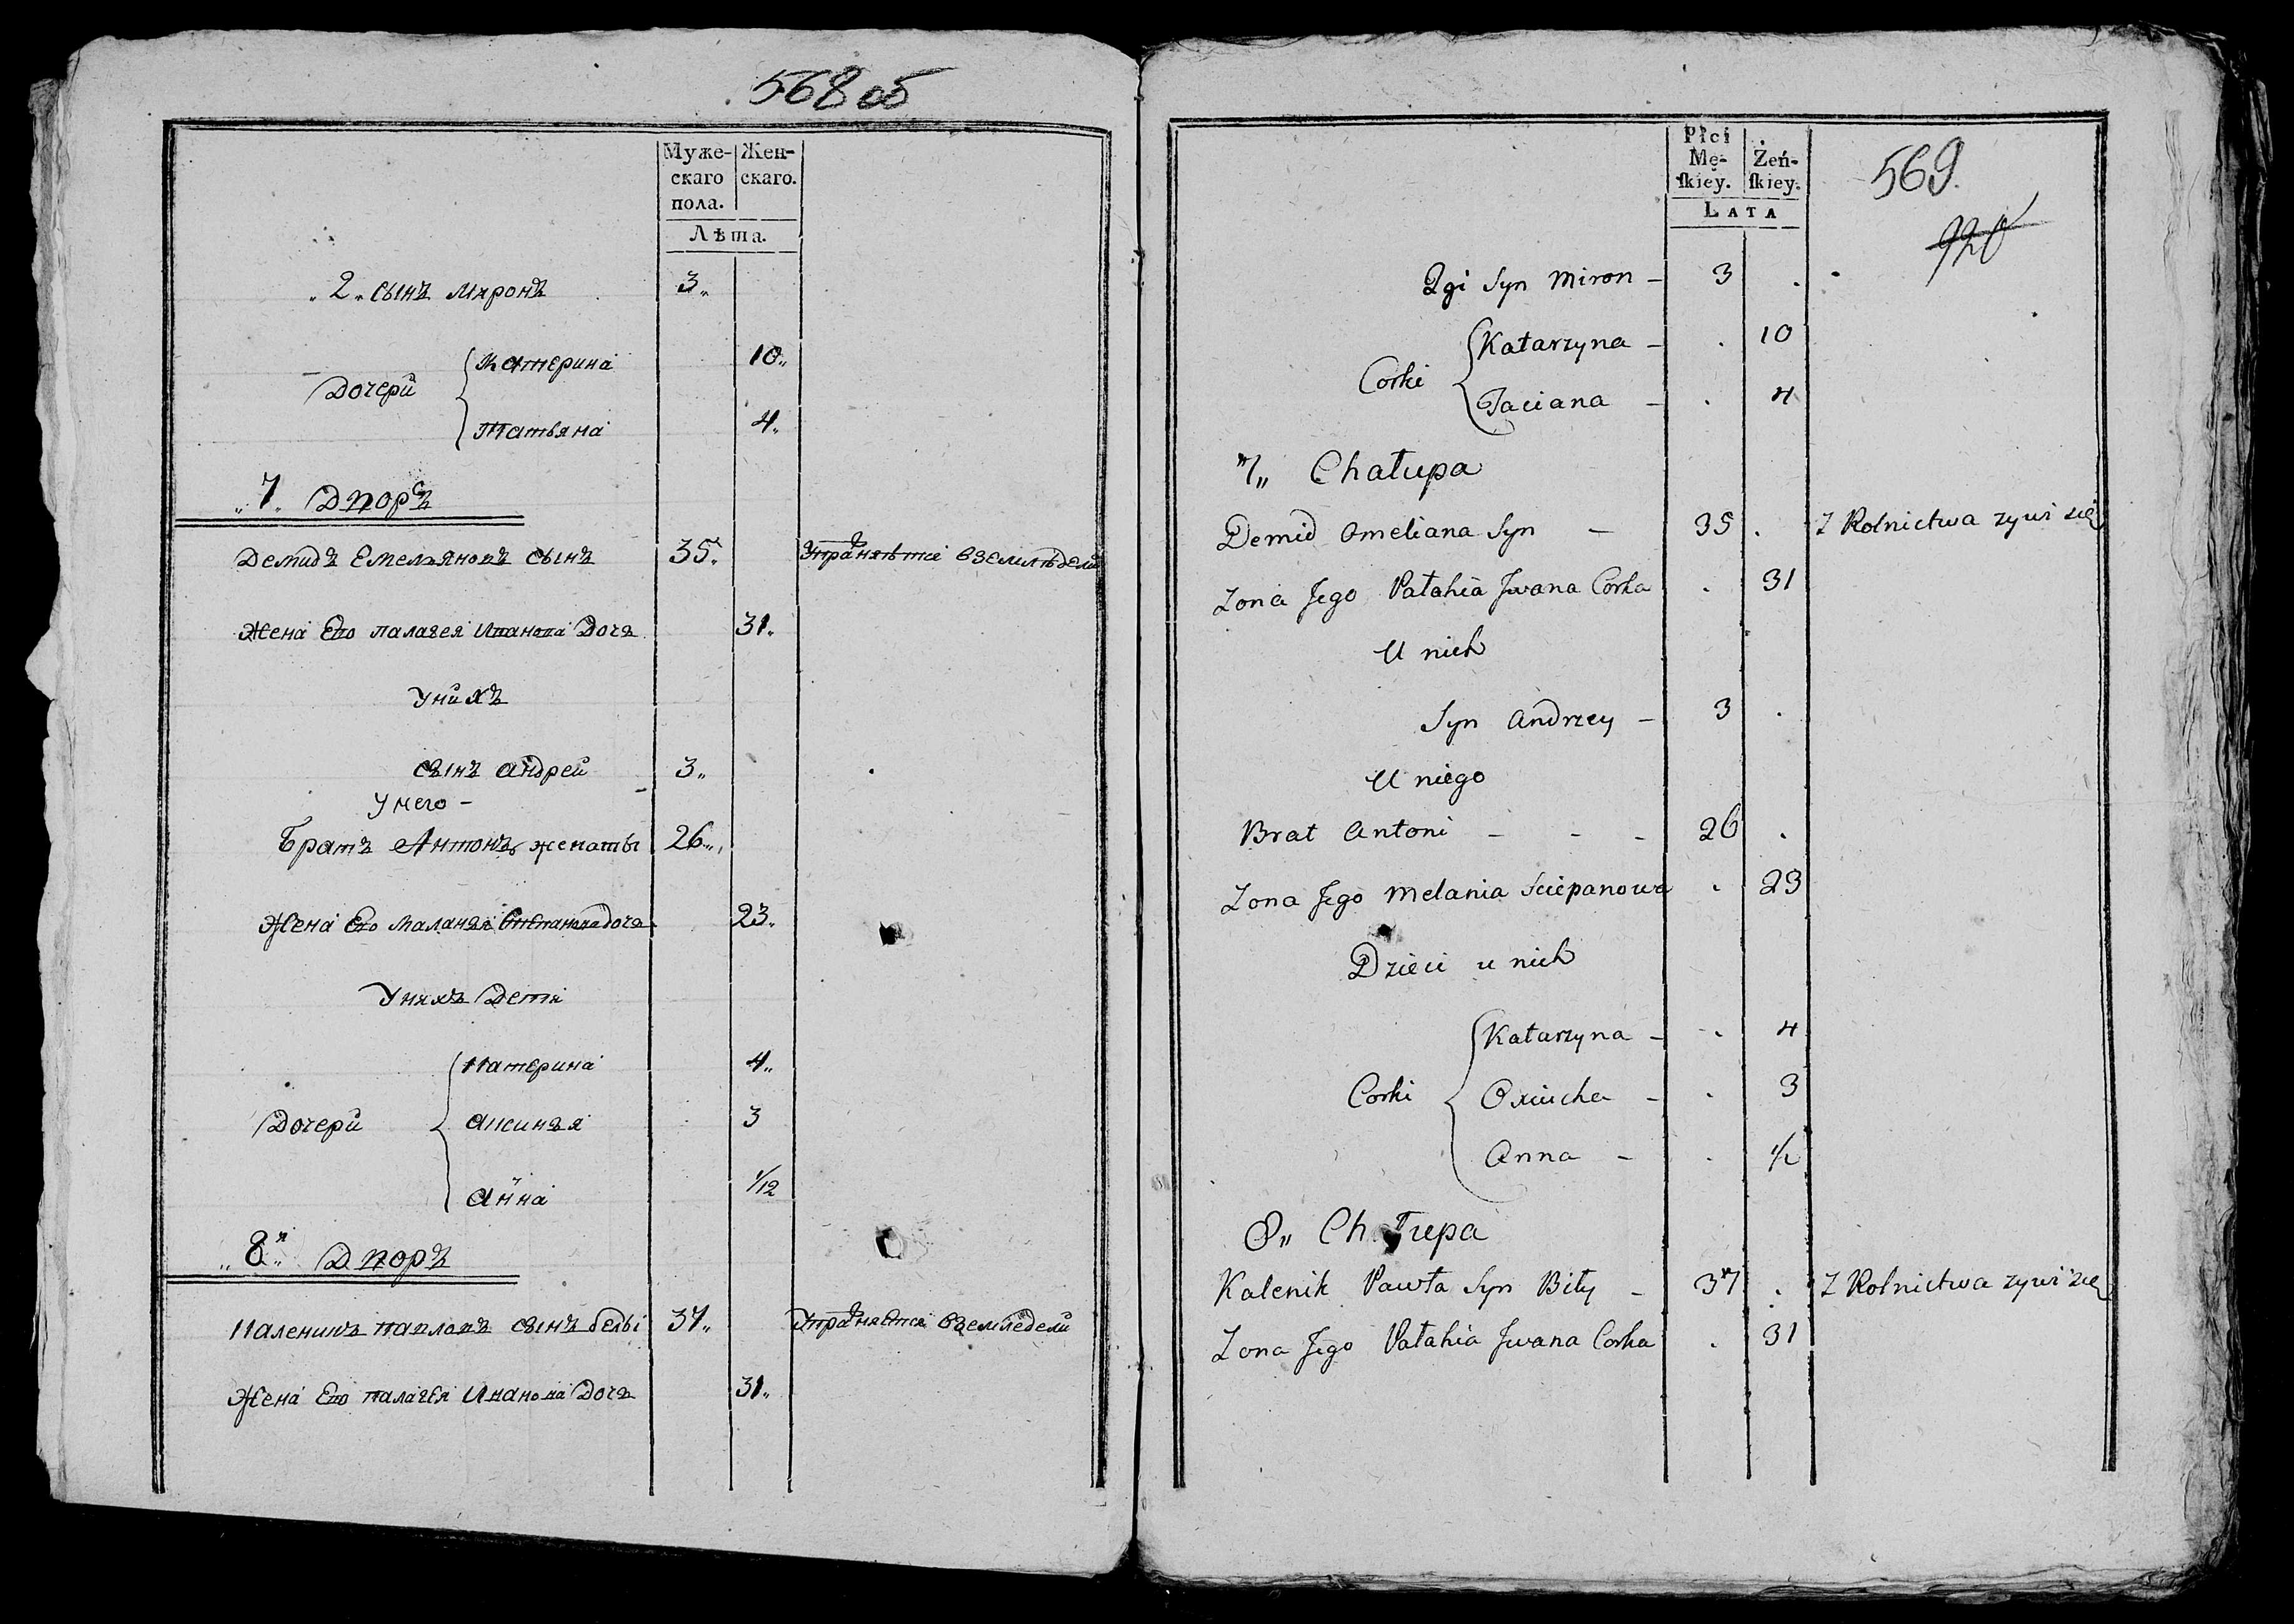 568 об
Муже-
скаго
пола.
Жен-
скаго.
Лѣта.
2 сынъ Миронъ 3
Катерина 10
Дочери
Татьяна 4
7 Дворъ
Демидъ Емельяновъ сынъ 35 Упражняется в земледели
Жена Его палагея Иванова Дочь 31
У нихъ
сынъ андрей 3
У него -
Братъ Антонъ женаты 26
Жена Его маланья Степанова дочь 23
У нихъ Дети
Катерина 4
Дочери аксинья 3
анна 1/12
8 Дворъ
Каленикъ павловъ сынъ белы 37 Упражняется в земледели
Жена Его палагея Иванова Дочь 31
569.
920
Płci
Mę-
skiey.
Żeń-
skiey.
LATA
2gi Syn Miron - 3 .
Katarzyna - . 10
Corki
Taciana - . 4
7,, Chałupa
Demid Omeliana Syn - 35 . Z Rolnictwa zywi sie
Zona Jego Pałahia Jwana Corka . 31
U nich
Syn Andrzey - 3 .
U niego
Brat Antoni - - - 26 .
Zona Jego Melania Sciepanowa . 23
Dzieci u nich
Katarzyna - . 4
Corki Oxiucha - . 3
Anna - . 1/2
8,, Chałupa
Kalenik Pawła Syn Biły - 37 . Z Rolnictwa zywi sie
Zona Jego Pałahia Jwana Corka . 31